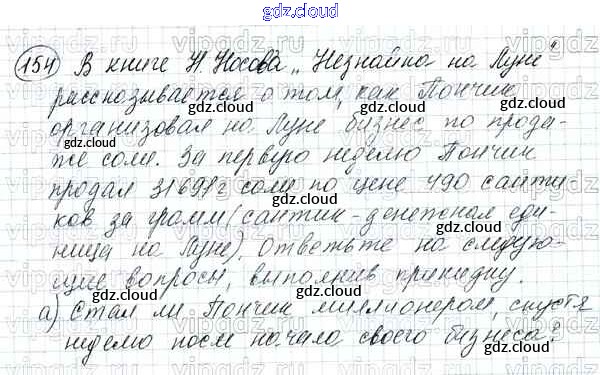 gdz.cloud
154 В книге Н. Носова „Незнайка на Луне"
рассказывается о том, как Пончик
организовал на Луне бизнес по прода-
же соли. За первую неделю Пончик
продал 31691г соли по цене 490 санти-
ков за грамм (сантик - денежная еди-
ница на Луне). Ответьте на следую-
щие вопросы, выполнив прикидку.
а) Стал ли Пончик миллионером, спустя
неделю после начала своего бизнеса?